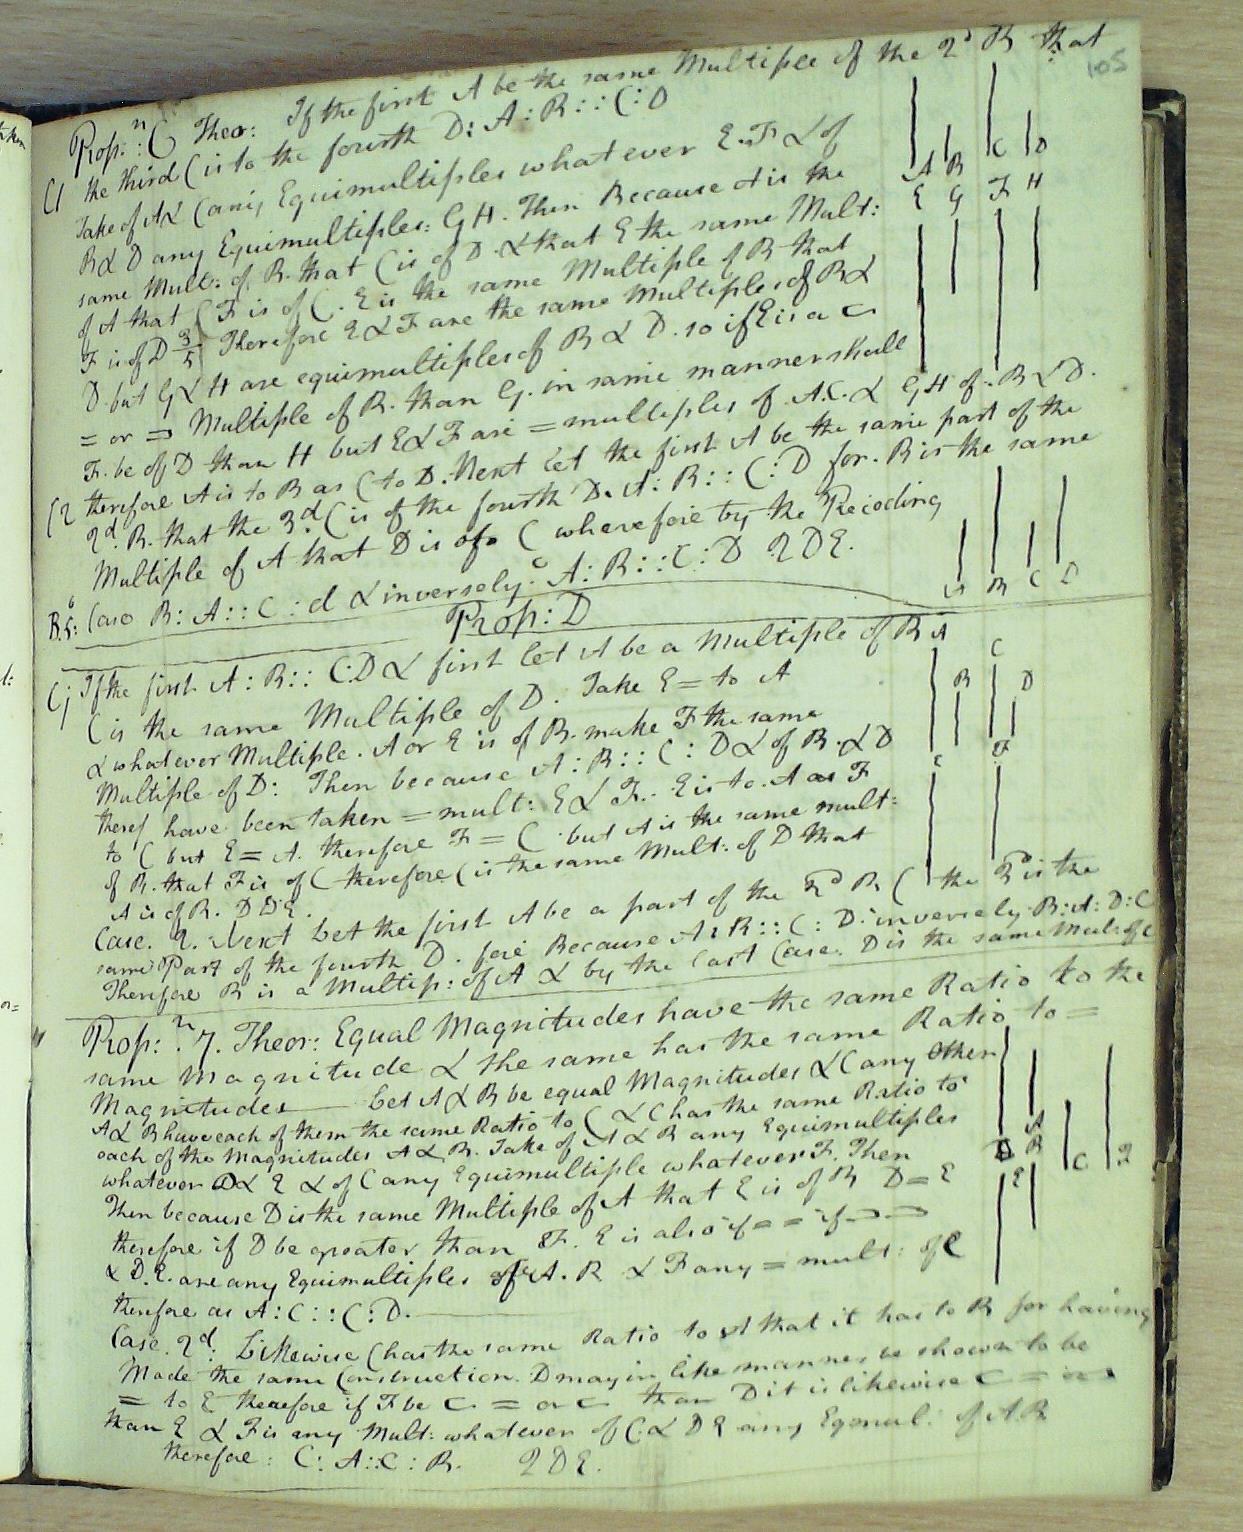 105
Prop:n C Theor: If the first A be the same Multiple of the 2d B that
C1 the third C is to the fourth D: A:B::C:D
Take of A & C any Equimultiples whatever E.F & of
B & D any Equimultiples: G H. Then Because A is the
same Mult: of B. that C is of D. & that E the same Mult:
of A that F is of C. E is the same Multiple of B that
F is of D 3/5 Therefore E & F are the same Multiples of B &
D. but G & H are equimultiples of B & D. so if E is a ⊏
= or ⊐ Multiple of B. than G. in same manner shall
F. be of D than H but E & F are = multiples of A.C. & G H of B & D.
therefore A is to B as C to D. Next Let the first A be the same part of the
C2 2d. B. that the 3d C is of the fourth D. A:B::C:D for B is the same
Multiple of A that D is of C wherefore by the Preceding
B.5: Case B:A::C:d & inversely: A:B::C:D QDE.
A B C D
E G F H
A B C D
Prop: D
C1 If the first A:B::C:D & first let A be a Multiple of B
C is the same Multiple of D. Take E = to A
& whatever Multiple A or E is of B. make F the same
Multiple of D: Then because A:B::C:D & of B & D
theref have been taken = mult: E & F. E is to A as F
to C but E = A. therefore F = C but A is the same mult:
of B. that F is of C therefore C is the same Mult: of D that
A is of B. QDE.
A C
B D
E F
Case. 2. Next Let the first A be a part of the 2d B C the 3d is the
same Part of the fourth D. for Because A:B::C:D. inversely B:A:D:C
Therefore B is a Multip: of A & by the last Case. D is the same Mul: of C
Prop:n 7. Theor: Equal Magnitudes have the same Ratio to the
same Magnitude & the same has the same Ratio to =
Magnitudes Let A & B be equal Magnitudes & C any other
A & B have each of them the same Ratio to C & C has the same Ratio to
each of the Magnitudes A & B. Take of A & B any Equimultiples
whatever D & E & of C any Equimultiple whatever F. Then
Then because D is the same Multiple of A that E is of B D = E
therefore if D be greater than F. E is also if = = if ⊐ ⊐
& D.E. are any Equimultiples of A. B & F any = mult: of C
therefore as A:C::C:D.
D A
B
E C
Case. 2d: Likewise C has the same Ratio to A that it has to B for having
Made the same Construction. D may in like manner be shown to be
= to E therefore if F be ⊏ = or ⊏ than D it is likewise ⊏ = or ⊐
than E & F is any Mult: whatever of C & D E any Eqmul: of A B
therefore: C:A::C:B. QDE.